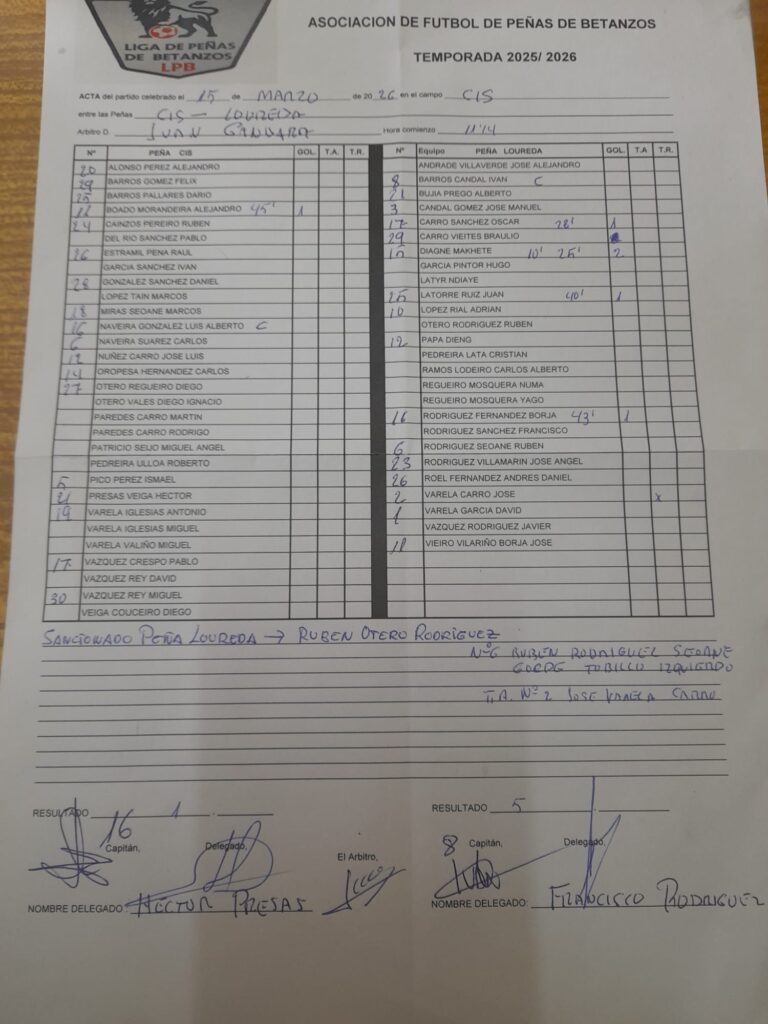 LIGA DE PEÑAS
DE BETANZOS
LPB
ASOCIACION DE FUTBOL DE PEÑAS DE BETANZOS
TEMPORADA 2025/ 2026
ACTA del partido celebrado el 15 de MARZO de 2026 en el campo CIS
entre las Peñas CIS - LOUREDA
Arbitro D. IVAN GANDARA Hora comienzo 11'14
Nº PEÑA CIS GOL. T.A. T.R.
20 ALONSO PEREZ ALEJANDRO
29 BARROS GOMEZ FELIX
25 BARROS PALLARES DARIO
BOADO MORANDEIRA ALEJANDRO 45' 1
24 CAINZOS PEREIRO RUBEN
DEL RIO SANCHEZ PABLO
26 ESTRAMIL PENA RAUL
GARCIA SANCHEZ IVAN
28 GONZALEZ SANCHEZ DANIEL
LOPEZ TAIN MARCOS
18 MIRAS SEOANE MARCOS
16 NAVEIRA GONZALEZ LUIS ALBERTO C
6 NAVEIRA SUAREZ CARLOS
12 NUÑEZ CARRO JOSE LUIS
14 OROPESA HERNANDEZ CARLOS
27 OTERO REGUEIRO DIEGO
OTERO VALES DIEGO IGNACIO
PAREDES CARRO MARTIN
PAREDES CARRO RODRIGO
PATRICIO SEIJO MIGUEL ANGEL
PEDREIRA ULLOA ROBERTO
5 PICO PEREZ ISMAEL
21 PRESAS VEIGA HECTOR
19 VARELA IGLESIAS ANTONIO
VARELA IGLESIAS MIGUEL
VARELA VALIÑO MIGUEL
17 VAZQUEZ CRESPO PABLO
VAZQUEZ REY DAVID
30 VAZQUEZ REY MIGUEL
VEIGA COUCEIRO DIEGO
Nº Equipo PEÑA LOUREDA GOL. T.A T.R.
ANDRADE VILLAVERDE JOSE ALEJANDRO
8 BARROS CANDAL IVAN C
21 BUJIA PREGO ALBERTO
3 CANDAL GOMEZ JOSE MANUEL
17 CARRO SANCHEZ OSCAR 28' 1
29 CARRO VIEITES BRAULIO
DIAGNE MAKHETE 10' 25' 2
GARCIA PINTOR HUGO
LATYR NDIAYE
25 LATORRE RUIZ JUAN 40' 1
10 LOPEZ RIAL ADRIAN
OTERO RODRIGUEZ RUBEN
12 PAPA DIENG
PEDREIRA LATA CRISTIAN
RAMOS LODEIRO CARLOS ALBERTO
REGUEIRO MOSQUERA NUMA
REGUEIRO MOSQUERA YAGO
16 RODRIGUEZ FERNANDEZ BORJA 43' 1
RODRIGUEZ SANCHEZ FRANCISCO
6 RODRIGUEZ SEOANE RUBEN
23 RODRIGUEZ VILLAMARIN JOSE ANGEL
26 ROEL FERNANDEZ ANDRES DANIEL
2 VARELA CARRO JOSE x
1 VARELA GARCIA DAVID
VAZQUEZ RODRIGUEZ JAVIER
VIEIRO VILARIÑO BORJA JOSE
SANCIONADO PEÑA LOUREDA → RUBEN OTERO RODRIGUEZ
Nº6 RUBEN RODRIGUEZ SEOANE
GOLPE TOBILLO IZQUIERDO
T.R. Nº 2 JOSE VARELA CARRO
RESULTADO 1
RESULTADO 5
16 Capitán, Delegado,
El Arbitro,
8 Capitán, Delegado,
NOMBRE DELEGADO: HECTOR PRESAS
NOMBRE DELEGADO: FRANCISCO RODRIGUEZ